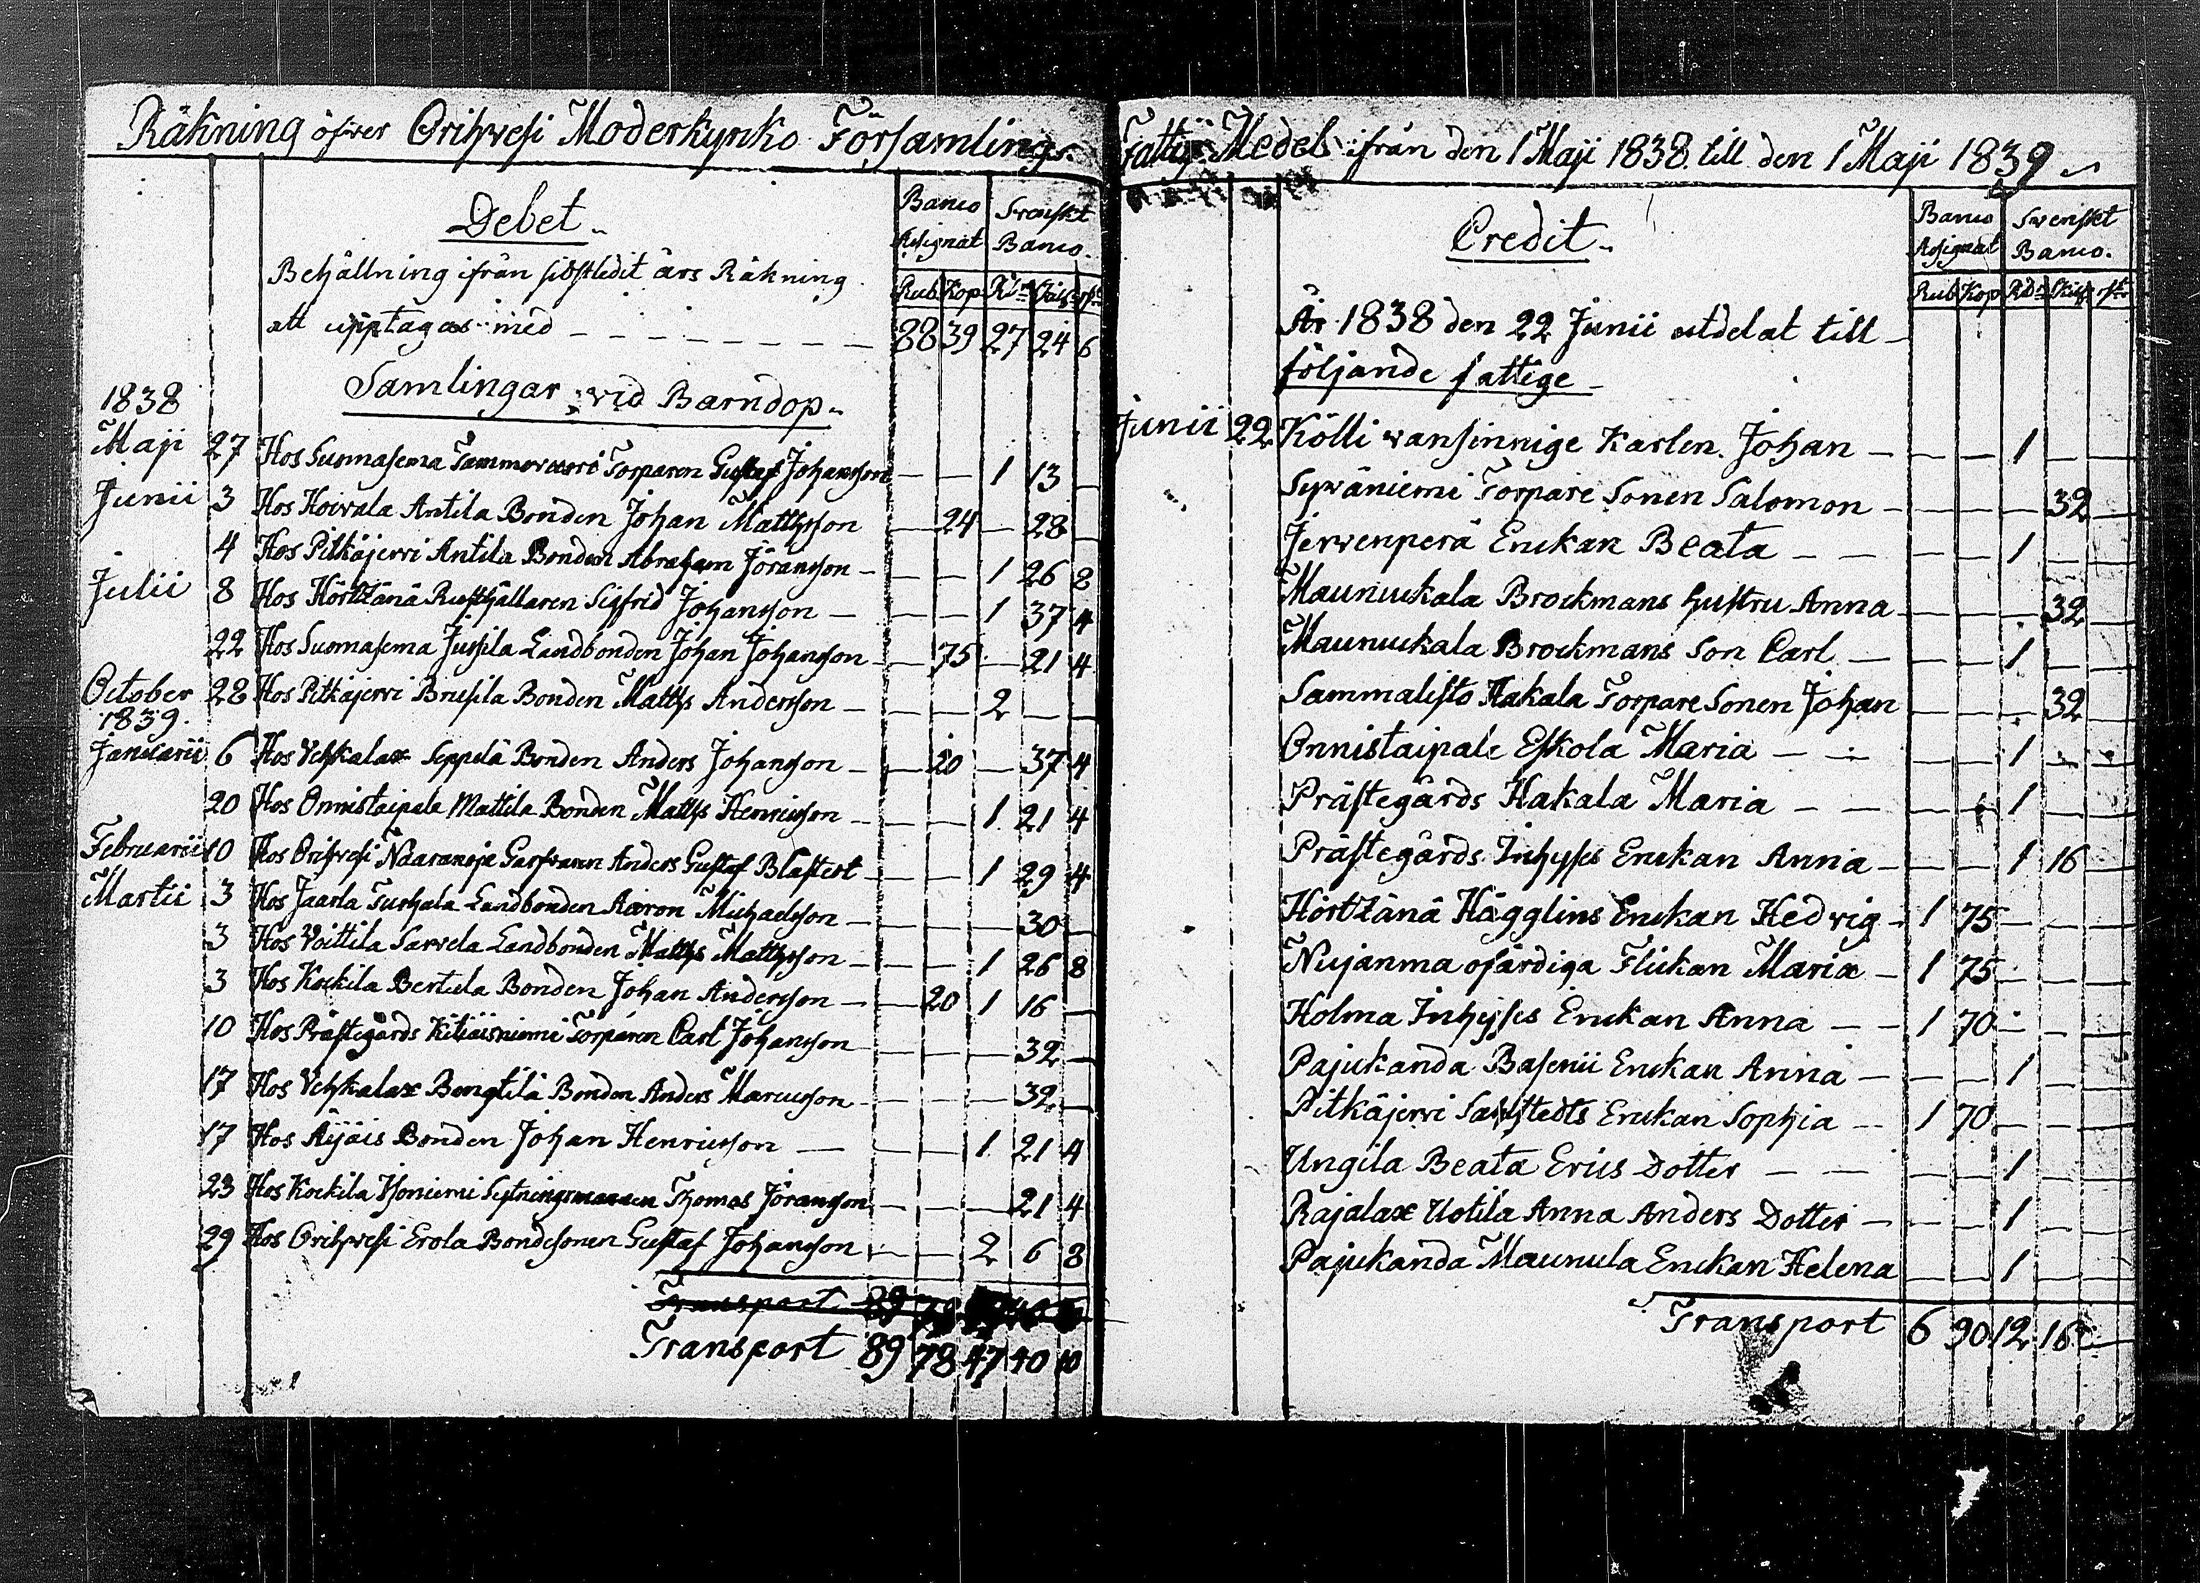 Räkning öfver Orihvesi Moderkyrko Församlings
Debet.
Banco Assignat
Svenskt Banco.
Behållning ifrån sidstledit års Räkning
Rub. Kop. Rdr Skill. rst.
att upptagas med - - - - - - - - 88 39 27 24 6
Samlingar vid Barndop.
1838
Maji 27 Hos Suomasema Tammervuori Torparen Gustaf Johansson - - 1 13 -
Junii 3 Hos Hoivala Antila Bonden Johan Mattsson - 24 - 28 -
4 Hos Pitkäjervi Antila Bonden Abraham Jöransson - - - 1 26 8
Julii 8 Hos Hörtzänä Rusthållaren Sigfrid Johansson - - - 1 37 4
22 Hos Suomasema Jussila Landbonden Johan Johansson - - 75 - 21 4
October 28 Hos Pitkäjervi Brusila Bonden Matths Andersson - - - 2 - -
1839.
Januarii 6 Hos Vehkalax Seppelä Bonden Anders Johansson - - 20 - 37 4
20 Hos Onnistaipale Mattila Bonden Matths Henricsson - - - 1 21 4
Februarii 10 Hos Orihvesi Naaranoja Garfvaren Anders Gustaf Blåfield - - - 1 29 4
Martii 3 Hos Jaarla Turhala Landbonden Aaron Michaelsson - - - - 30 -
3 Hos Voittila Sarvela Landbonden Matths Mattsson - - - 1 26 8
3 Hos Kockila Bertula Bonden Johan Andersson - - 20 1 16 -
10 Hos Prästegårds Kiliäisniemi Torparen Carl Johansson - - - - 32 -
17 Hos Vehkalax Bengtilä Bonden Anders Marcusson - - - - 32 -
17 Hos Äijäis Bonden Johan Henricsson - - - 1 21 4
23 Hos Kockila Isoniemi Sytningsmannen Thomas Jöransson - - - 21 4
29 Hos Orihvesi Erola Bondesonen Gustaf Johansson - - 2 6 8
Transport 89
Transport 89 78 47 40 10
Fattige Medel ifrån den 1 Maji 1838. till den 1 Maji 1839
Credit.
Banco Assignat
Svenskt Banco.
Rub. Kop. Rdr Skill. rst.
År 1838 den 22 Junii utdelat till
följande fattige
Junii 22 Kölli vansinnige Karlen Johan - - - 1 - -
Sywäniemi Torpare Sonen Salomon - - - - 32 -
Jervenperä Enckan Beata - - - - 1 - -
Maunuukala Brockmans hustru Anna - - - 32 -
Maunuukala Brockmans Son Carl - - - 1 - -
Sammalisto Hakala Torpare Sonen Johan - - - 32 -
Onnistaipale Eskola Maria - - - - 1 - -
Prästegårds Hakala Maria - - - - 1 - -
Prästegårds Inhyses Enckan Anna - - - 1 16 -
Hörtzänä Hägglins Enckan Hedvig - 1 75 - - -
Nujanma ofärdiga Flickan Maria - 1 75 - - -
Holma Inhyses Enckan Anna - - 1 70 - - -
Pajukanda Basenii Enckan Anna - - - 1 - -
Pitkäjervi Sahlstedts Enckan Sophia - 1 70 - - -
Ungila Beata Erics Dotter - - - - 1 - -
Rajalax Uotila Anna Anders Dotter - - - 1 - -
Pajukanda Maunula Enckan Helena - - 1 - -
Transport 6 90 12 16 -